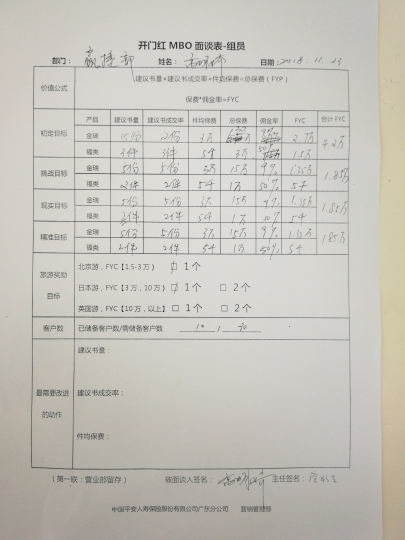 开门红 MBO 面谈表-组员
部门： 赢捷部 姓名： 日期：2018.11.23
价值公式
建议书量*建议书成交率*件均保费=总保费（FYP）
保费*佣金率=FYC
产品 建议书量 建议书成交率 件均保费 总保费 佣金率 FYC 合计 FYC
初定目标
金瑞 15份 2份 3万 2.7万
福类 3件 3件 5千 3万 1.5万
4.2万
挑战目标
金瑞 5份 5份 3万 15万 9% 1.35万
福类 2件 2件 5千 1万 50% 5千
1.85万
现实目标
金瑞 5份 5份 3万 15万 9% 1.35万
福类 2件 5千 1万 50% 5千
1.85万
精准目标
金瑞 5份 5份 3万 15万 9% 1.35万
福类 2件 2件 5千 1万 50% 5千
1.85万
旅游奖励目标
北京游，FYC【1.5-3 万） □ 1个
日本游，FYC【3 万，10 万） □ 1个 □ 2个
英国游，FYC【10 万，以上） □ 1个 □ 2个
客户数 已储备客户数/需储备客户数 10 /
最需要改进的动作
建议书量：
建议书成交率：
件均保费：
（第一联：营业部留存） 被面谈人签名： 主任签名：
中国平安人寿保险股份有限公司广东分公司 营销管理部